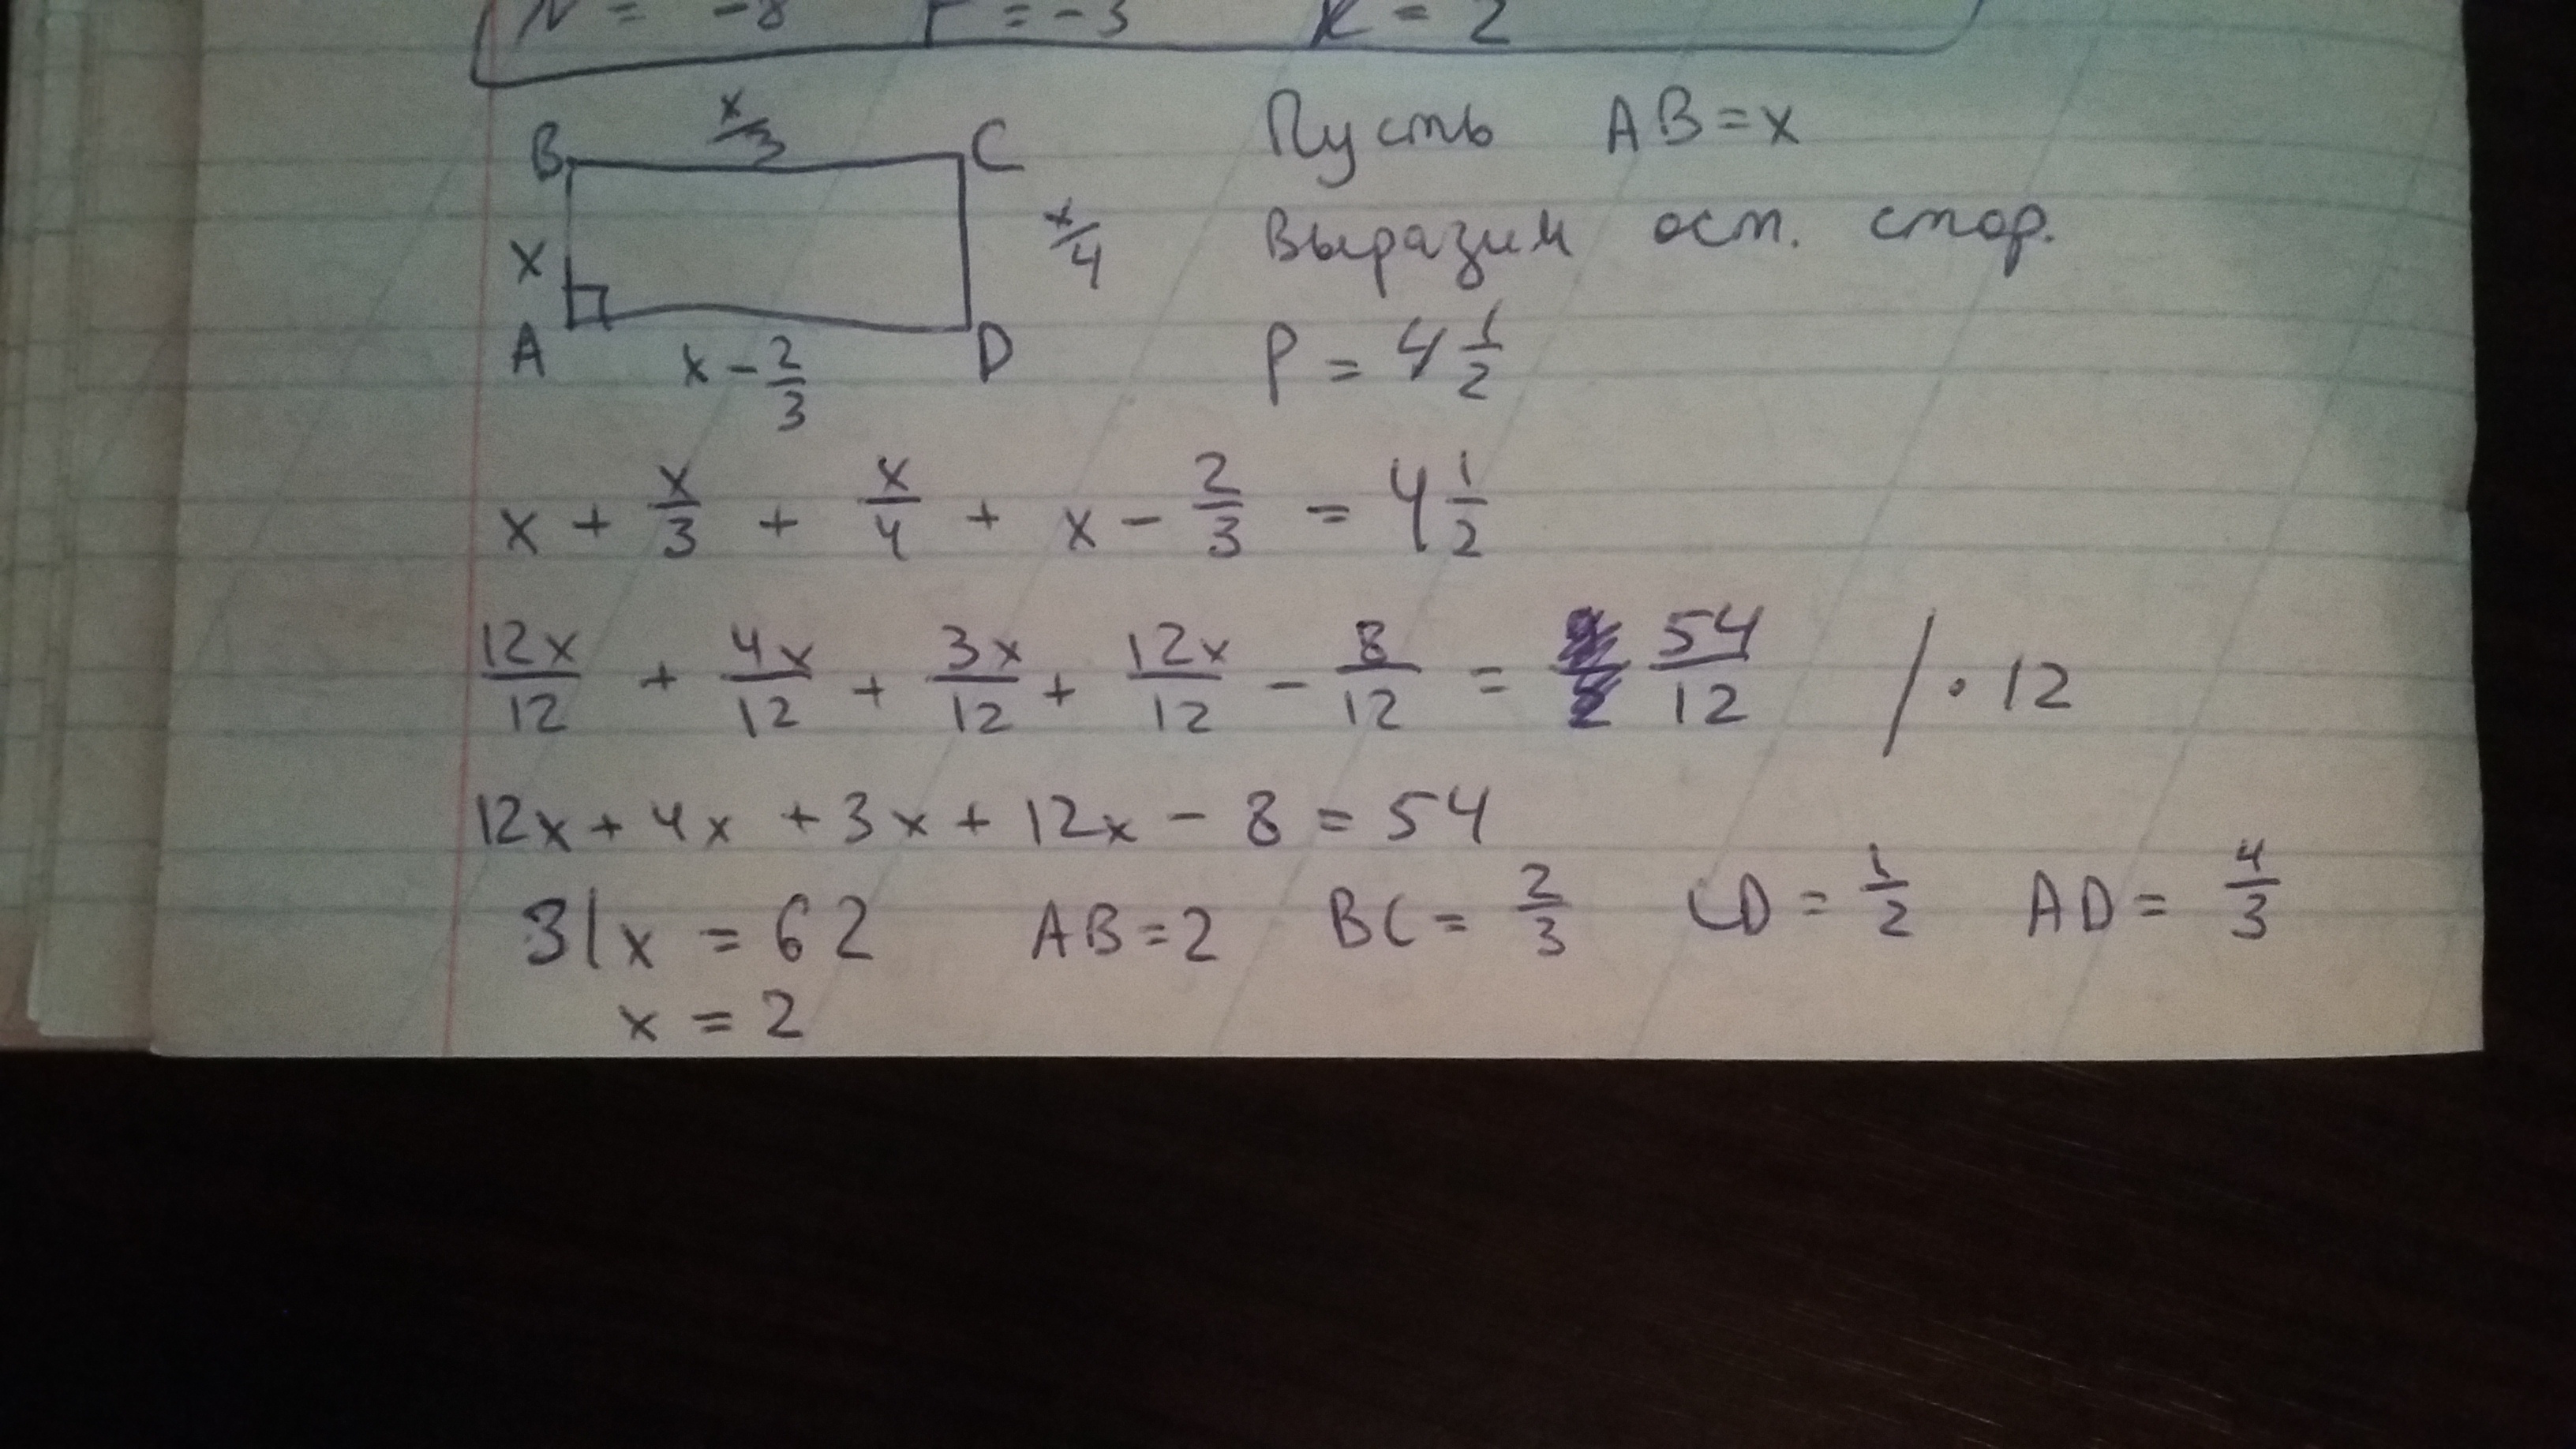 N = -8 r = -3 K = 2
x/3
B C
Пусть AB = x
x x/4
Выразим ост. стор.
A D
x - 2/3
P = 4 1/2
x + x/3 + x/4 + x - 2/3 = 4 1/2
12x/12 + 4x/12 + 3x/12 + 12x/12 - 8/12 = 54/12 / · 12
12x + 4x + 3x + 12x - 8 = 54
31x = 62 AB = 2 BC = 2/3 CD = 1/2 AD = 4/3
x = 2